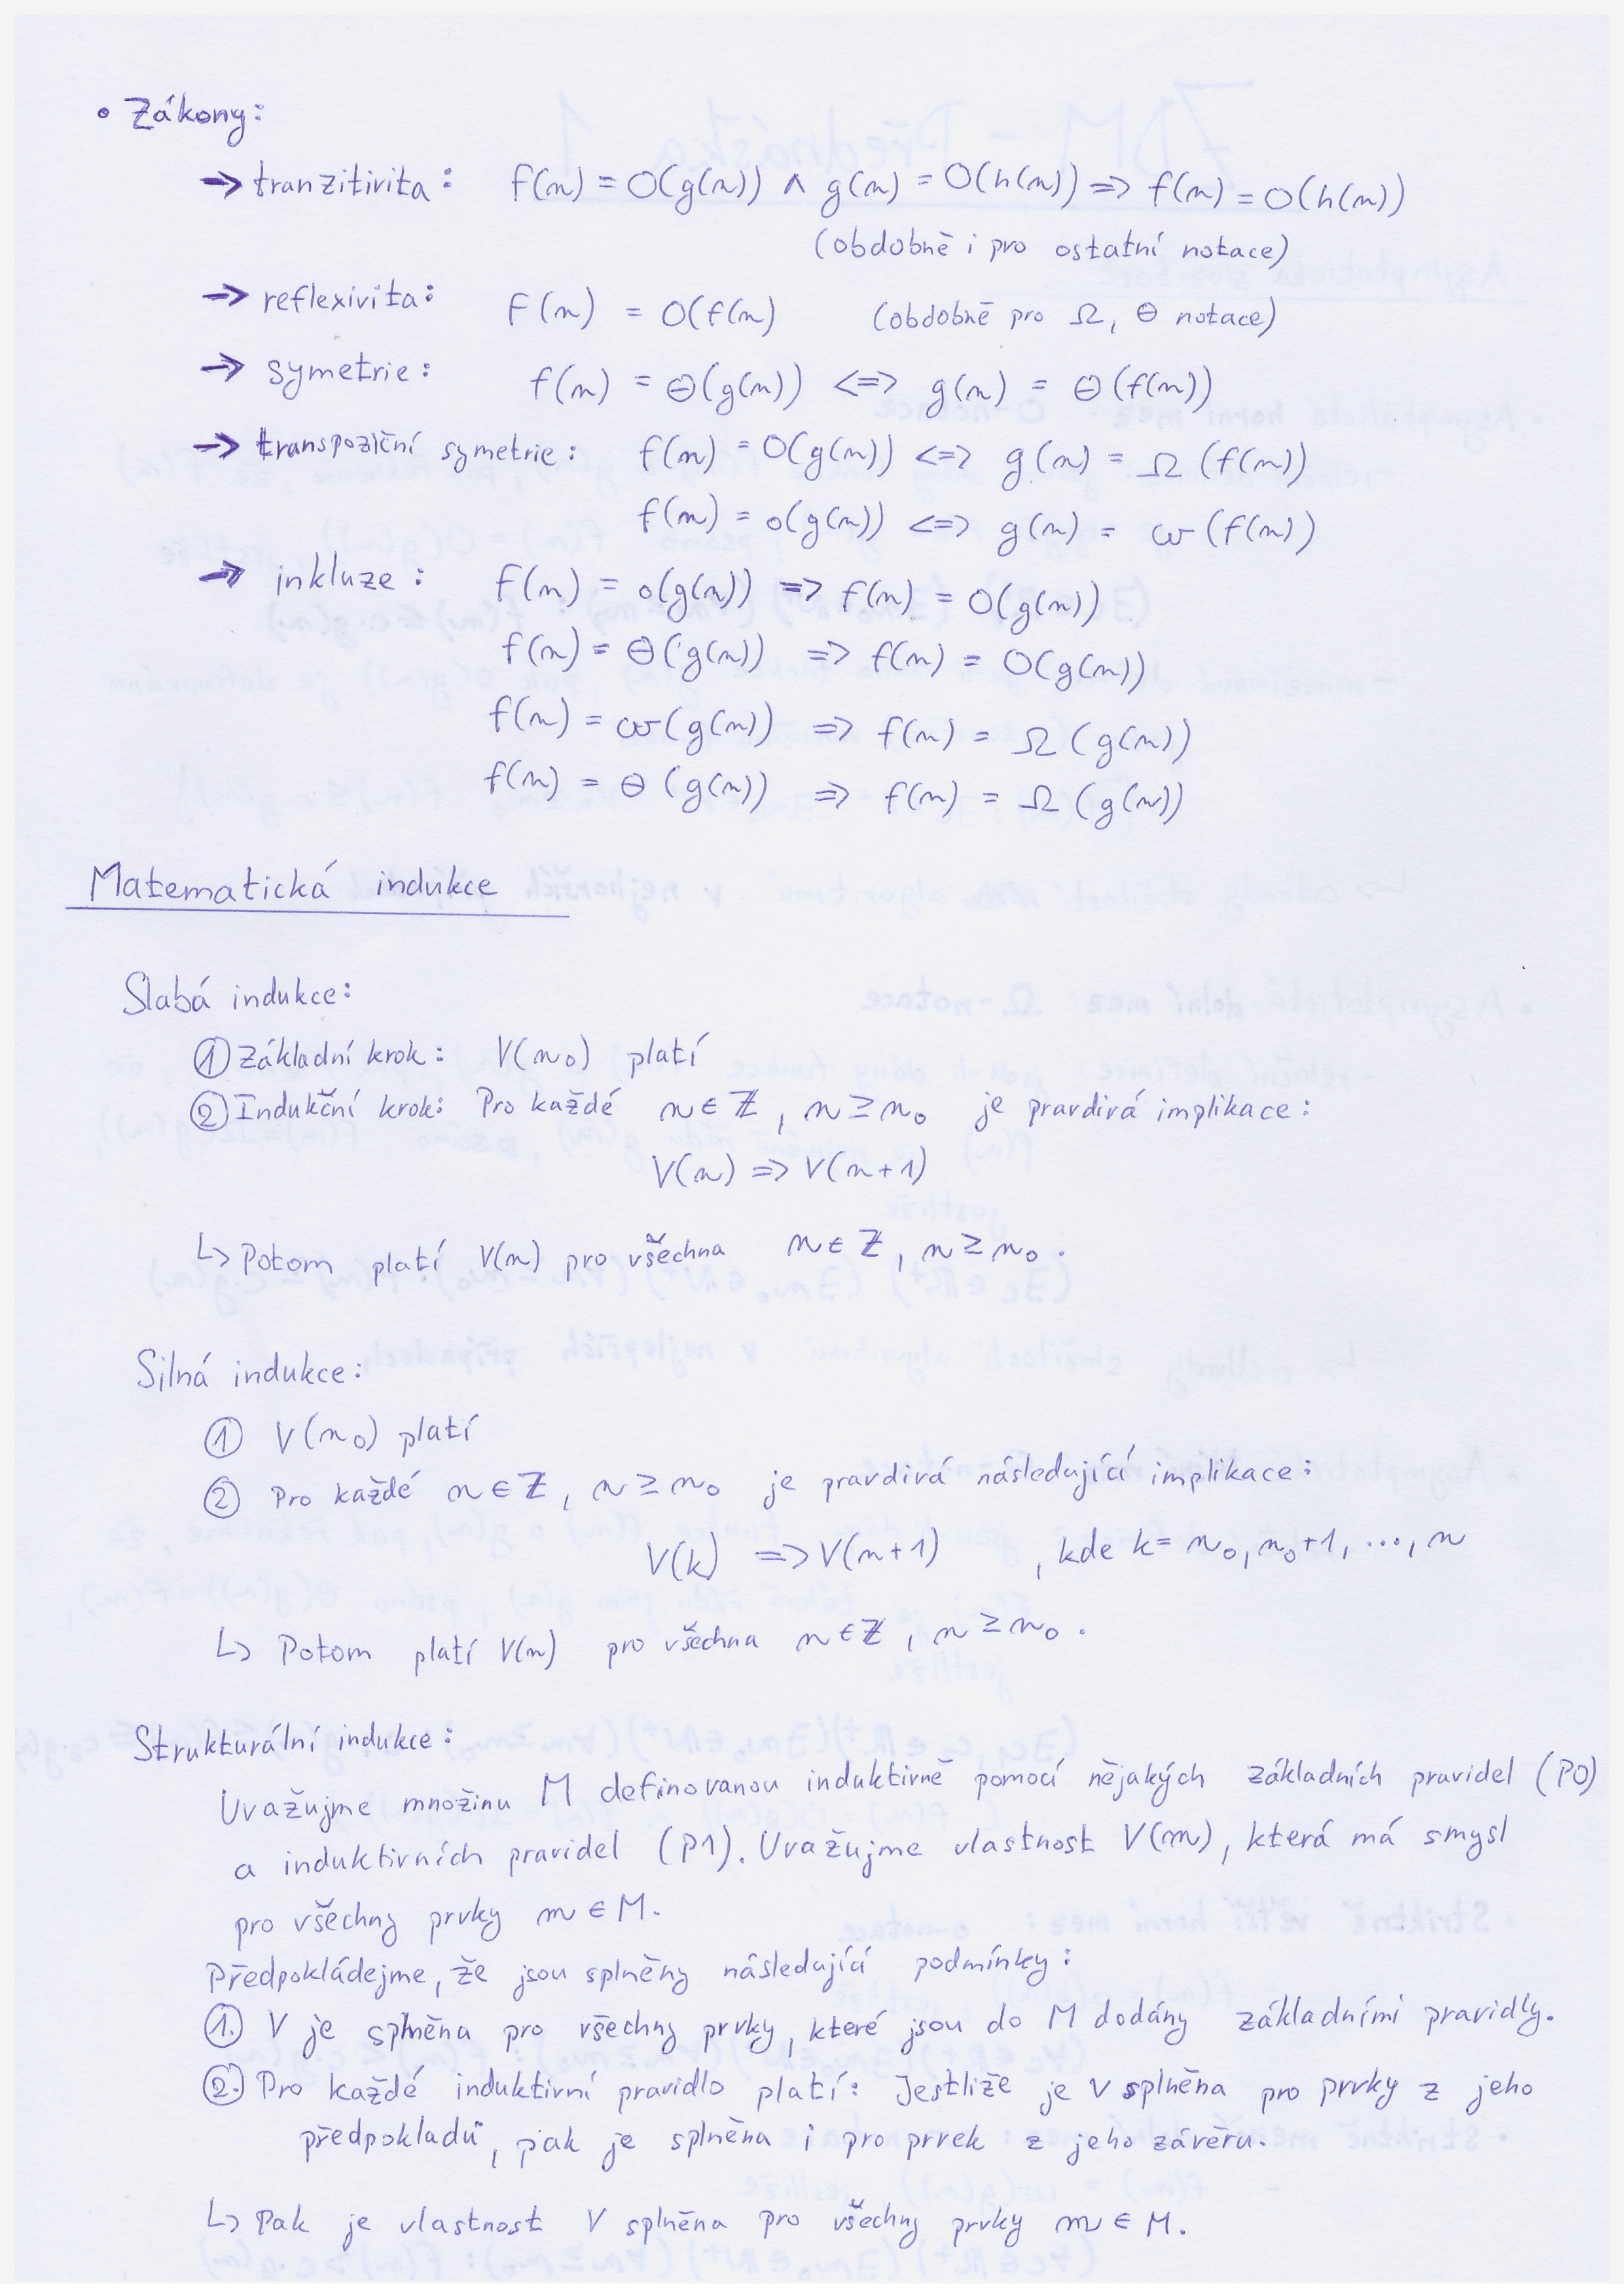 • Zákony:
→ tranzitivita: f(n) = O(g(n)) ∧ g(n) = O(h(n)) => f(n) = O(h(n))
(obdobně i pro ostatní notace)
→ reflexivita: f(n) = O(f(n) (obdobně pro Ω, Θ notace)
→ symetrie: f(n) = Θ(g(n)) <=> g(n) = Θ(f(n))
→ transpoziční symetrie: f(n) = O(g(n)) <=> g(n) = Ω(f(n))
f(n) = o(g(n)) <=> g(n) = ω(f(n))
→ inkluze: f(n) = o(g(n)) => f(n) = O(g(n))
f(n) = Θ(g(n)) => f(n) = O(g(n))
f(n) = ω(g(n)) => f(n) = Ω(g(n))
f(n) = Θ(g(n)) => f(n) = Ω(g(n))
Matematická indukce
Slabá indukce:
① Základní krok: V(n₀) platí
② Indukční krok: Pro každé n ∈ ℤ, n ≥ n₀ je pravdivá implikace:
V(n) => V(n+1)
↳ Potom platí V(n) pro všechna n ∈ ℤ, n ≥ n₀.
Silná indukce:
① V(n₀) platí
② Pro každé n ∈ ℤ, n ≥ n₀ je pravdivá následující implikace:
V(k) => V(n+1) , kde k = n₀, n₀+1, ..., n
↳ Potom platí V(n) pro všechna n ∈ ℤ, n ≥ n₀.
Strukturální indukce:
Uvažujme množinu M definovanou induktivně pomocí nějakých základních pravidel (P0)
a induktivních pravidel (P1). Uvažujme vlastnost V(m), která má smysl
pro všechny prvky m ∈ M.
Předpokládejme, že jsou splněny následující podmínky:
①. V je splněna pro všechny prvky, které jsou do M dodány základními pravidly.
②. Pro každé induktivní pravidlo platí: Jestliže je V splněna pro prvky z jeho
předpokladů, pak je splněna i pro prvek z jeho závěru.
↳ Pak je vlastnost V splněna pro všechny prvky m ∈ M.